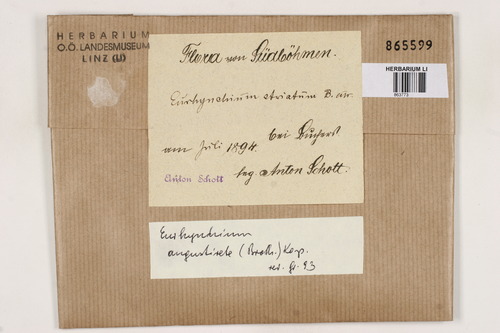 HERBARIUM
O.Ö. LANDESMUSEUM
LINZ (LI)
865599
HERBARIUM LI
Flora von Südböhmen.
Eurhynchium striatum B. eur.
am Juli 1894. bei Buchers
Anton Schott
leg. Anton Schott.
Eurhynchium
angustirete (Broth.) Kop.
rev. Gr. 93